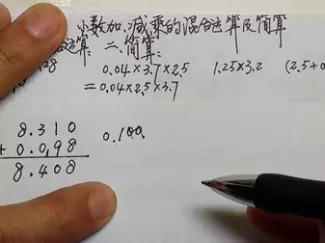 小数加、减乘的混合运算及简算
运算 二、简算:
28 0.04×3.7×2.5 1.25×3.2 (2.5+
=0.04×2.5×3.7
8.310 0.100
+ 0.098
8.408